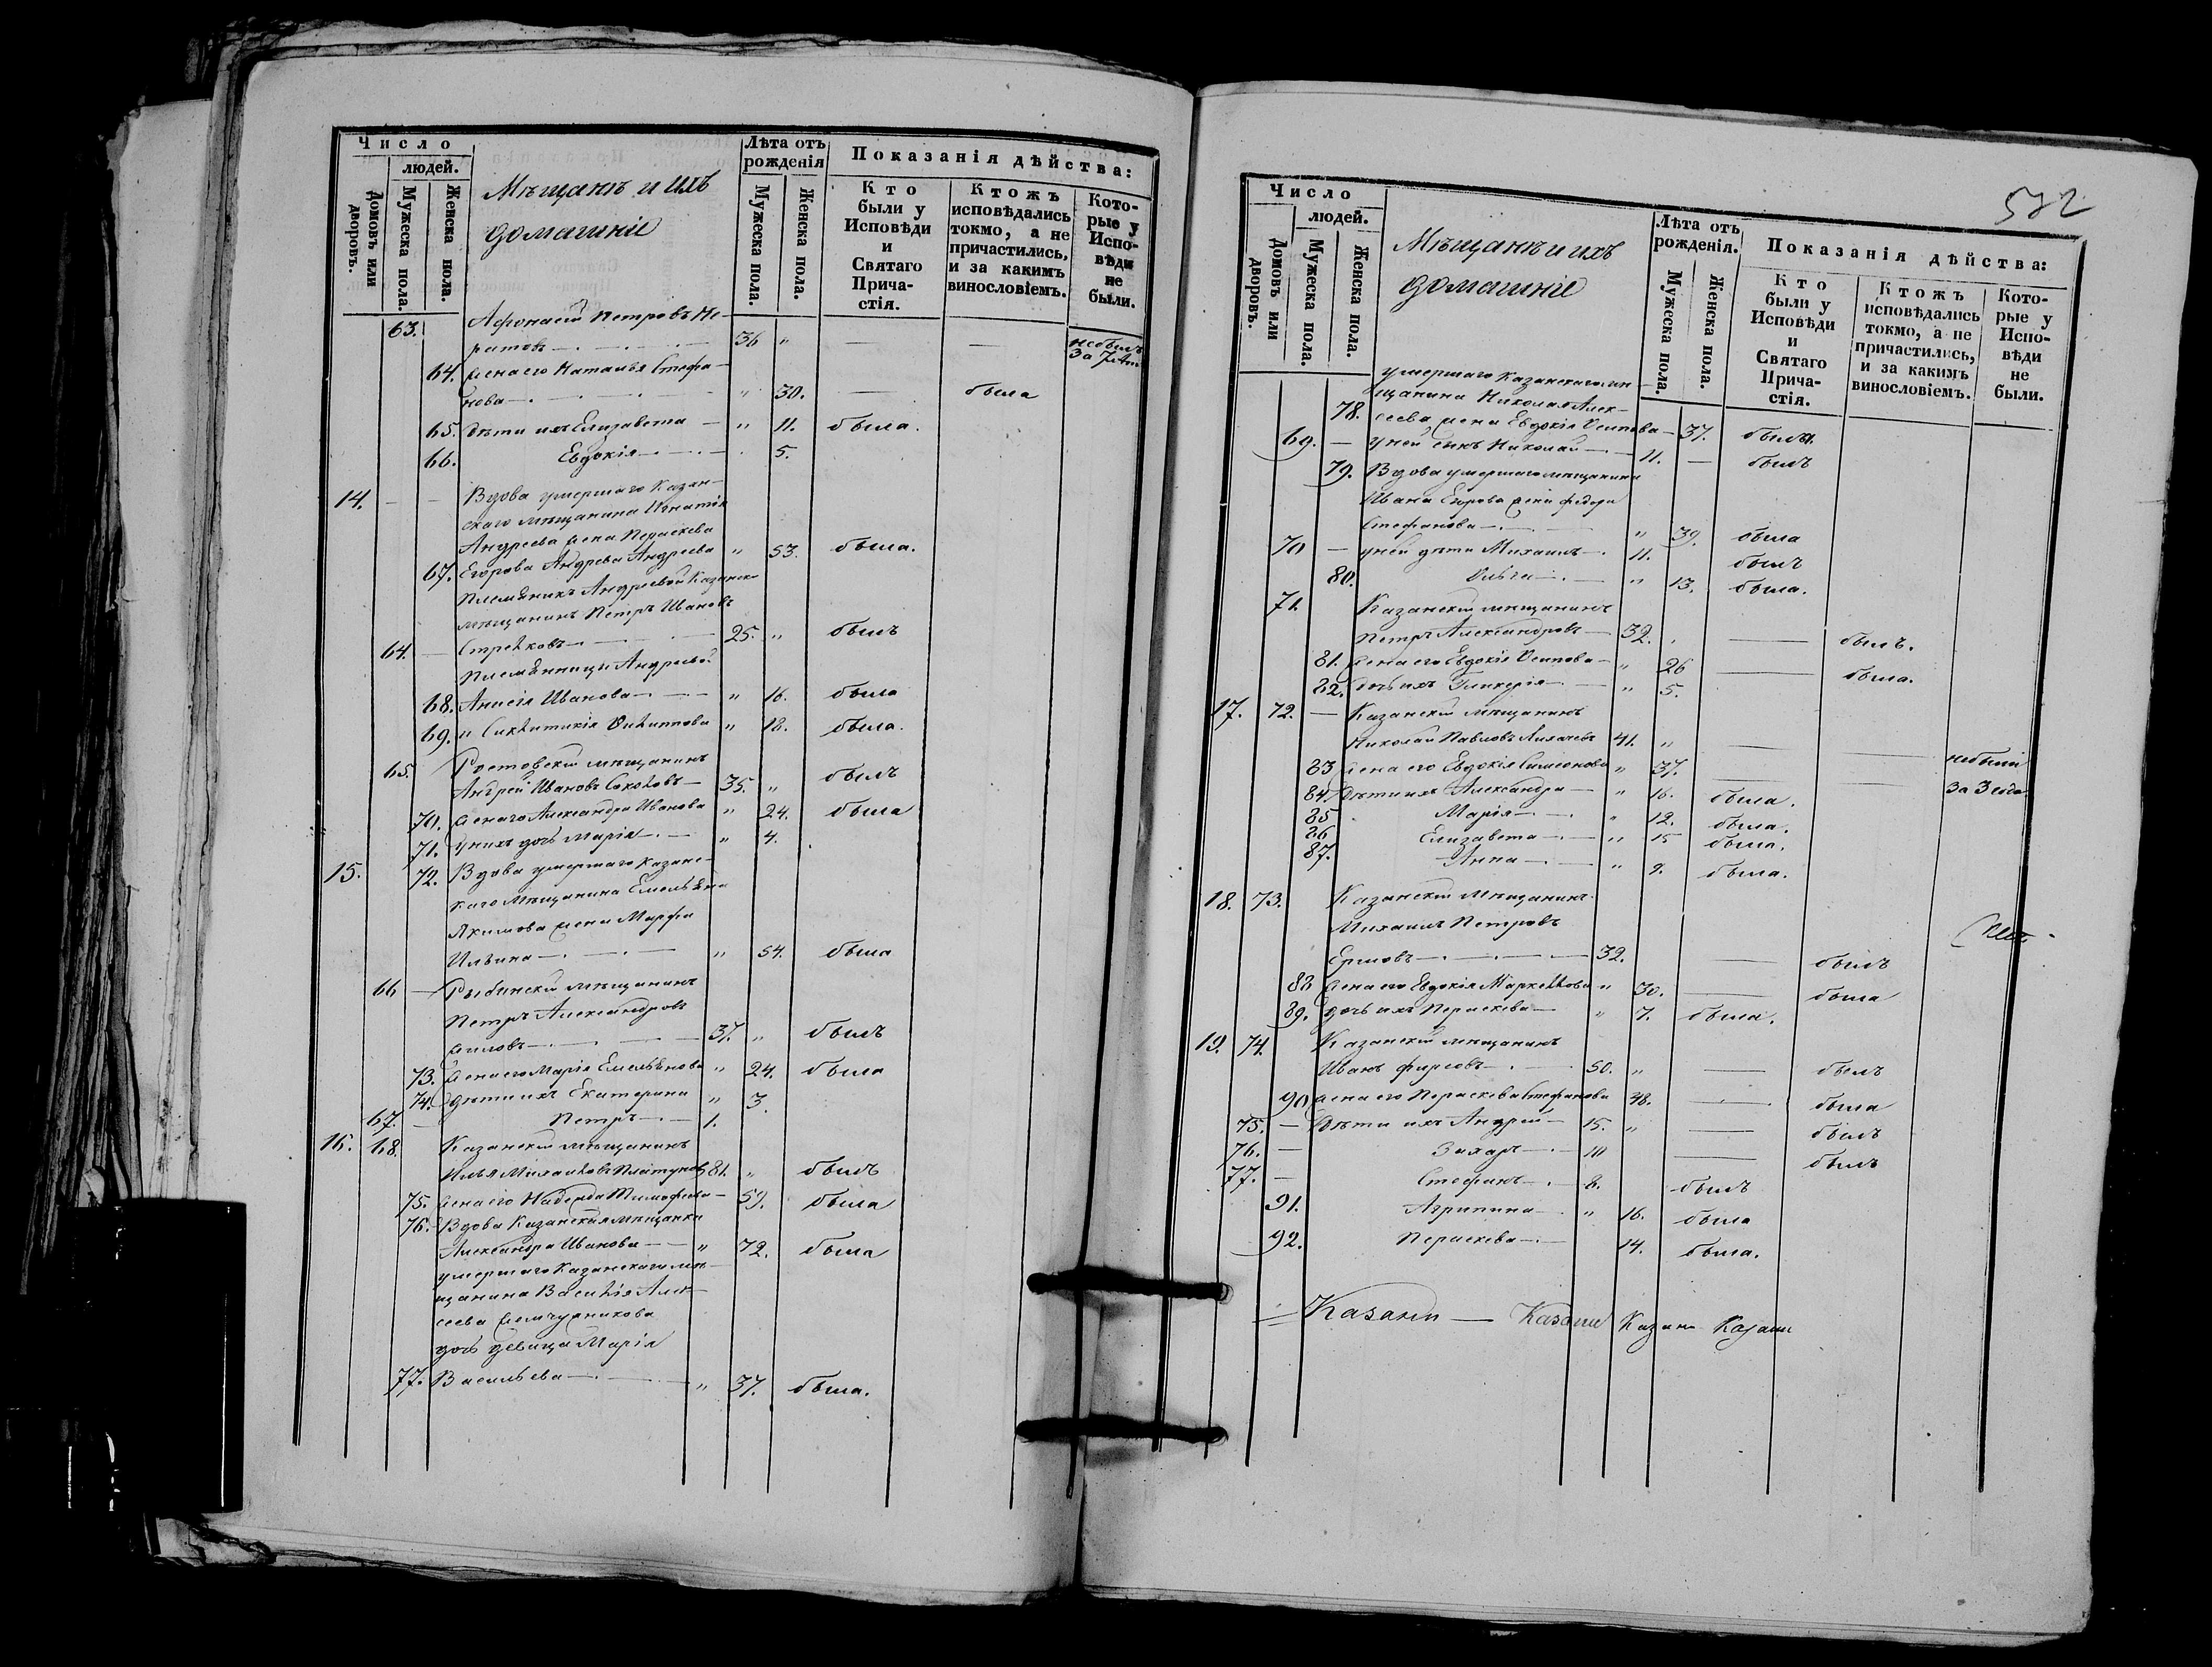 Число
людей.
Домовъ или дворовъ.
Мужеска пола.
Женска пола.
Мѣщанъ и ихъ
домашніе
Лѣта отъ
рожденія
Мужеска пола.
Женска пола.
Показанія дѣйства:
Кто
были у
Исповѣди
и
Святаго
Прича-
стія.
Ктожъ
исповѣдались
токмо, а не
причастились,
и за какимъ
винословіемъ.
Кото-
рые у
Испо-
вѣди
не
были.
63. Афонасій Петровъ
36 " — — небылъ
64. жена его Наталья Стефа-
нова — " 30. — была
65. дѣти ихъ Елизавета — " 11. была.
66. Евдокія — 5.
14. — — Вдова умершаго Казан-
скаго мѣщанина Игнатія
Андреева жена Параскева
67. Егорова Андрева Андреева " 53. была.
Племянникъ Андреевой Казанск
мѣщанинъ Петръ Ивановъ
64. — Стрелковъ — 25. " былъ
Племянницы Андреевой
68. Анисія Иванова — " 16. была
69. и " 18. была.
65. Ростовскій мѣщанинъ
Андрей Ивановъ Соколовъ — 35. " былъ
70. жена его Александра Иванова " 24. была
71. у нихъ дочь Марія — " 4.
15. 72. Вдова умершаго Казанс-
каго мѣщанина Емельяна
Якимова жена Марфа
Ильина — " 54. была
66 — Рыбинскій мѣщанинъ
Петръ Александровъ
37. " былъ
73. жена его Марія Емельянова " 24. была
74. дѣти ихъ Екатерина " 3.
67. — Петръ — 1.
16. 68. Казанскій мѣщанинъ
Илья Михайловъ Платуновъ 81. " былъ
75. жена его Надежда Тимофеева — 59. была
76. Вдова Казанская мѣщанка
Александра Иванова — " 72. была
умершаго Казанскаго мѣ-
щанина Василія Алек-
сеева Жемчужникова
дочь девица Марія
77. Васильева — " 37. была.
572
Число
людей.
Домовъ или дворовъ.
Мужеска пола.
Женска пола.
Мѣщанъ и ихъ
домашніе
Лѣта отъ
рожденія.
Мужеска пола.
Женска пола.
Показанія дѣйства:
Кто
были у
Исповѣди
и
Святаго
Прича-
стія.
Ктожъ
исповѣдались
токмо, а не
причастились,
и за какимъ
винословіемъ.
Кото-
рые у
Испо-
вѣди
не
были.
умершаго Казанскаго мѣ-
щанина Николая Алек-
78. сеева жена Евдокія Осипова — 37. была
69. — у ней сынъ Николай — 11. — былъ
79. Вдова умершаго мѣщанина
Ивана Егорова жена Федора
Стефанова — " 39. была
70 — у ней дѣти Михаилъ — 11. былъ
80. Ольга — " 13. была.
71. Казанскій мѣщанинъ
Петръ Александровъ — 32. — былъ.
81. жена его Евдокія Осипова — " 26 — была.
82. дочь ихъ Гликерія — " 5.
17. 72. — Казанскій мѣщанинъ
Николай Павловъ Лихачевъ 41. " — — небыли
83 жена его Евдокія Симеонова " 37. — — за 3 года
84. Дѣти ихъ Александра — " 16. была.
85 Марія — " 12. была.
86 Елизавета — " 15 была.
87. Анна — " 9. была.
18. 73. Казанскій мѣщанинъ
Михаилъ Петровъ
32. — былъ
88 жена его Евдокія Маркелова " 30. — была
89. дочь ихъ Параскева — " 7. была.
19. 74. Казанскій мѣщанинъ
Иванъ Фирсовъ — 50. " — былъ
90 жена его Параскева Стефанова 48. — была
75. — Дѣти ихъ Андрей — 15. " — былъ
76. — Захаръ — 10 — былъ
77. — Стефанъ — 8. былъ
91. Агрипина — " 16. была
92. Параскева — 14. была.
Казани — Казани Казан Казани